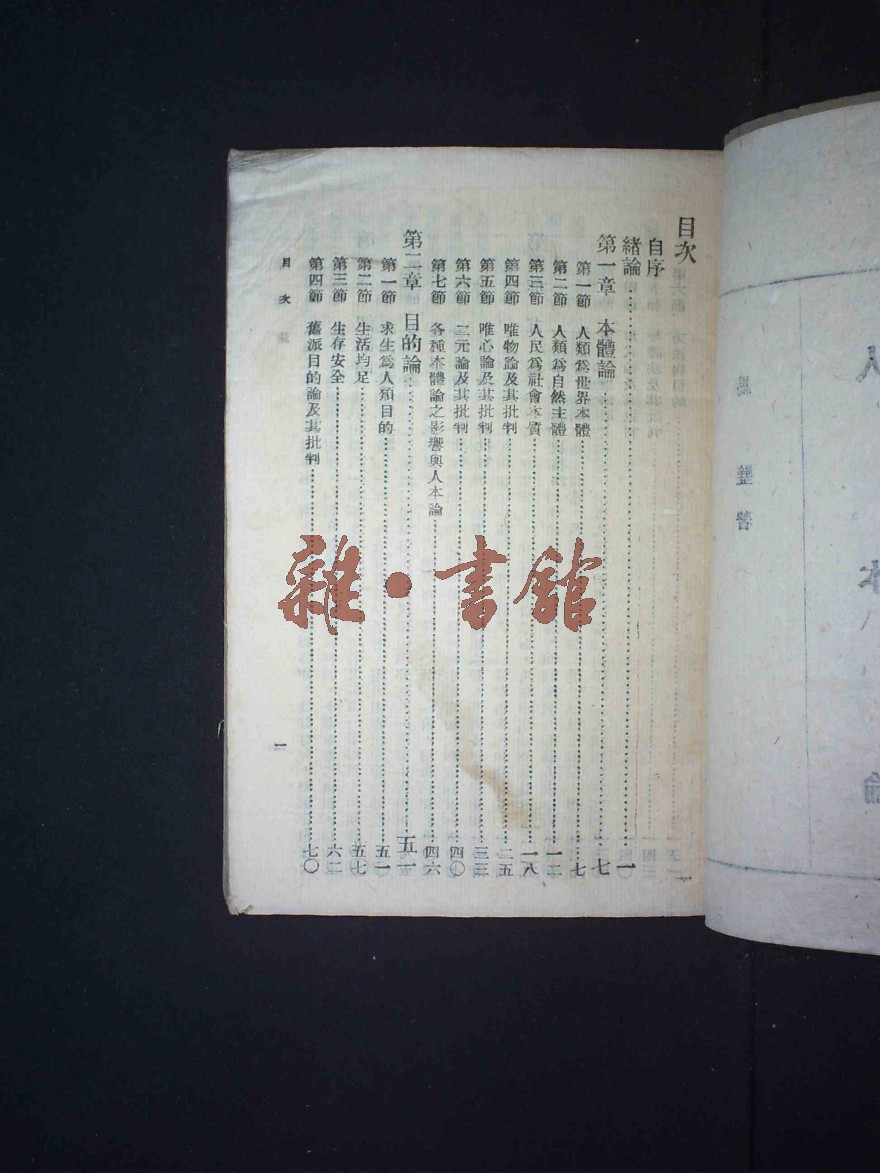 目次
自序
緒論⋯⋯⋯⋯一
第一章 本體論⋯⋯⋯⋯七
第一節 人類爲世界本體⋯⋯⋯⋯七
第二節 人類爲自然主體⋯⋯⋯⋯一二
第三節 人民爲社會本質⋯⋯⋯⋯一八
第四節 唯物論及其批判⋯⋯⋯⋯二五
第五節 唯心論及其批判⋯⋯⋯⋯三三
第六節 二元論及其批判⋯⋯⋯⋯四〇
第七節 各種本體論之影響與人本論⋯⋯⋯⋯四六
第二章 目的論⋯⋯⋯⋯五一
第一節 求生爲人類目的⋯⋯⋯⋯五一
第二節 生活均足⋯⋯⋯⋯五七
第三節 生存安全⋯⋯⋯⋯六二
第四節 舊派目的論及其批判⋯⋯⋯⋯七〇
目次
一
雜·書館